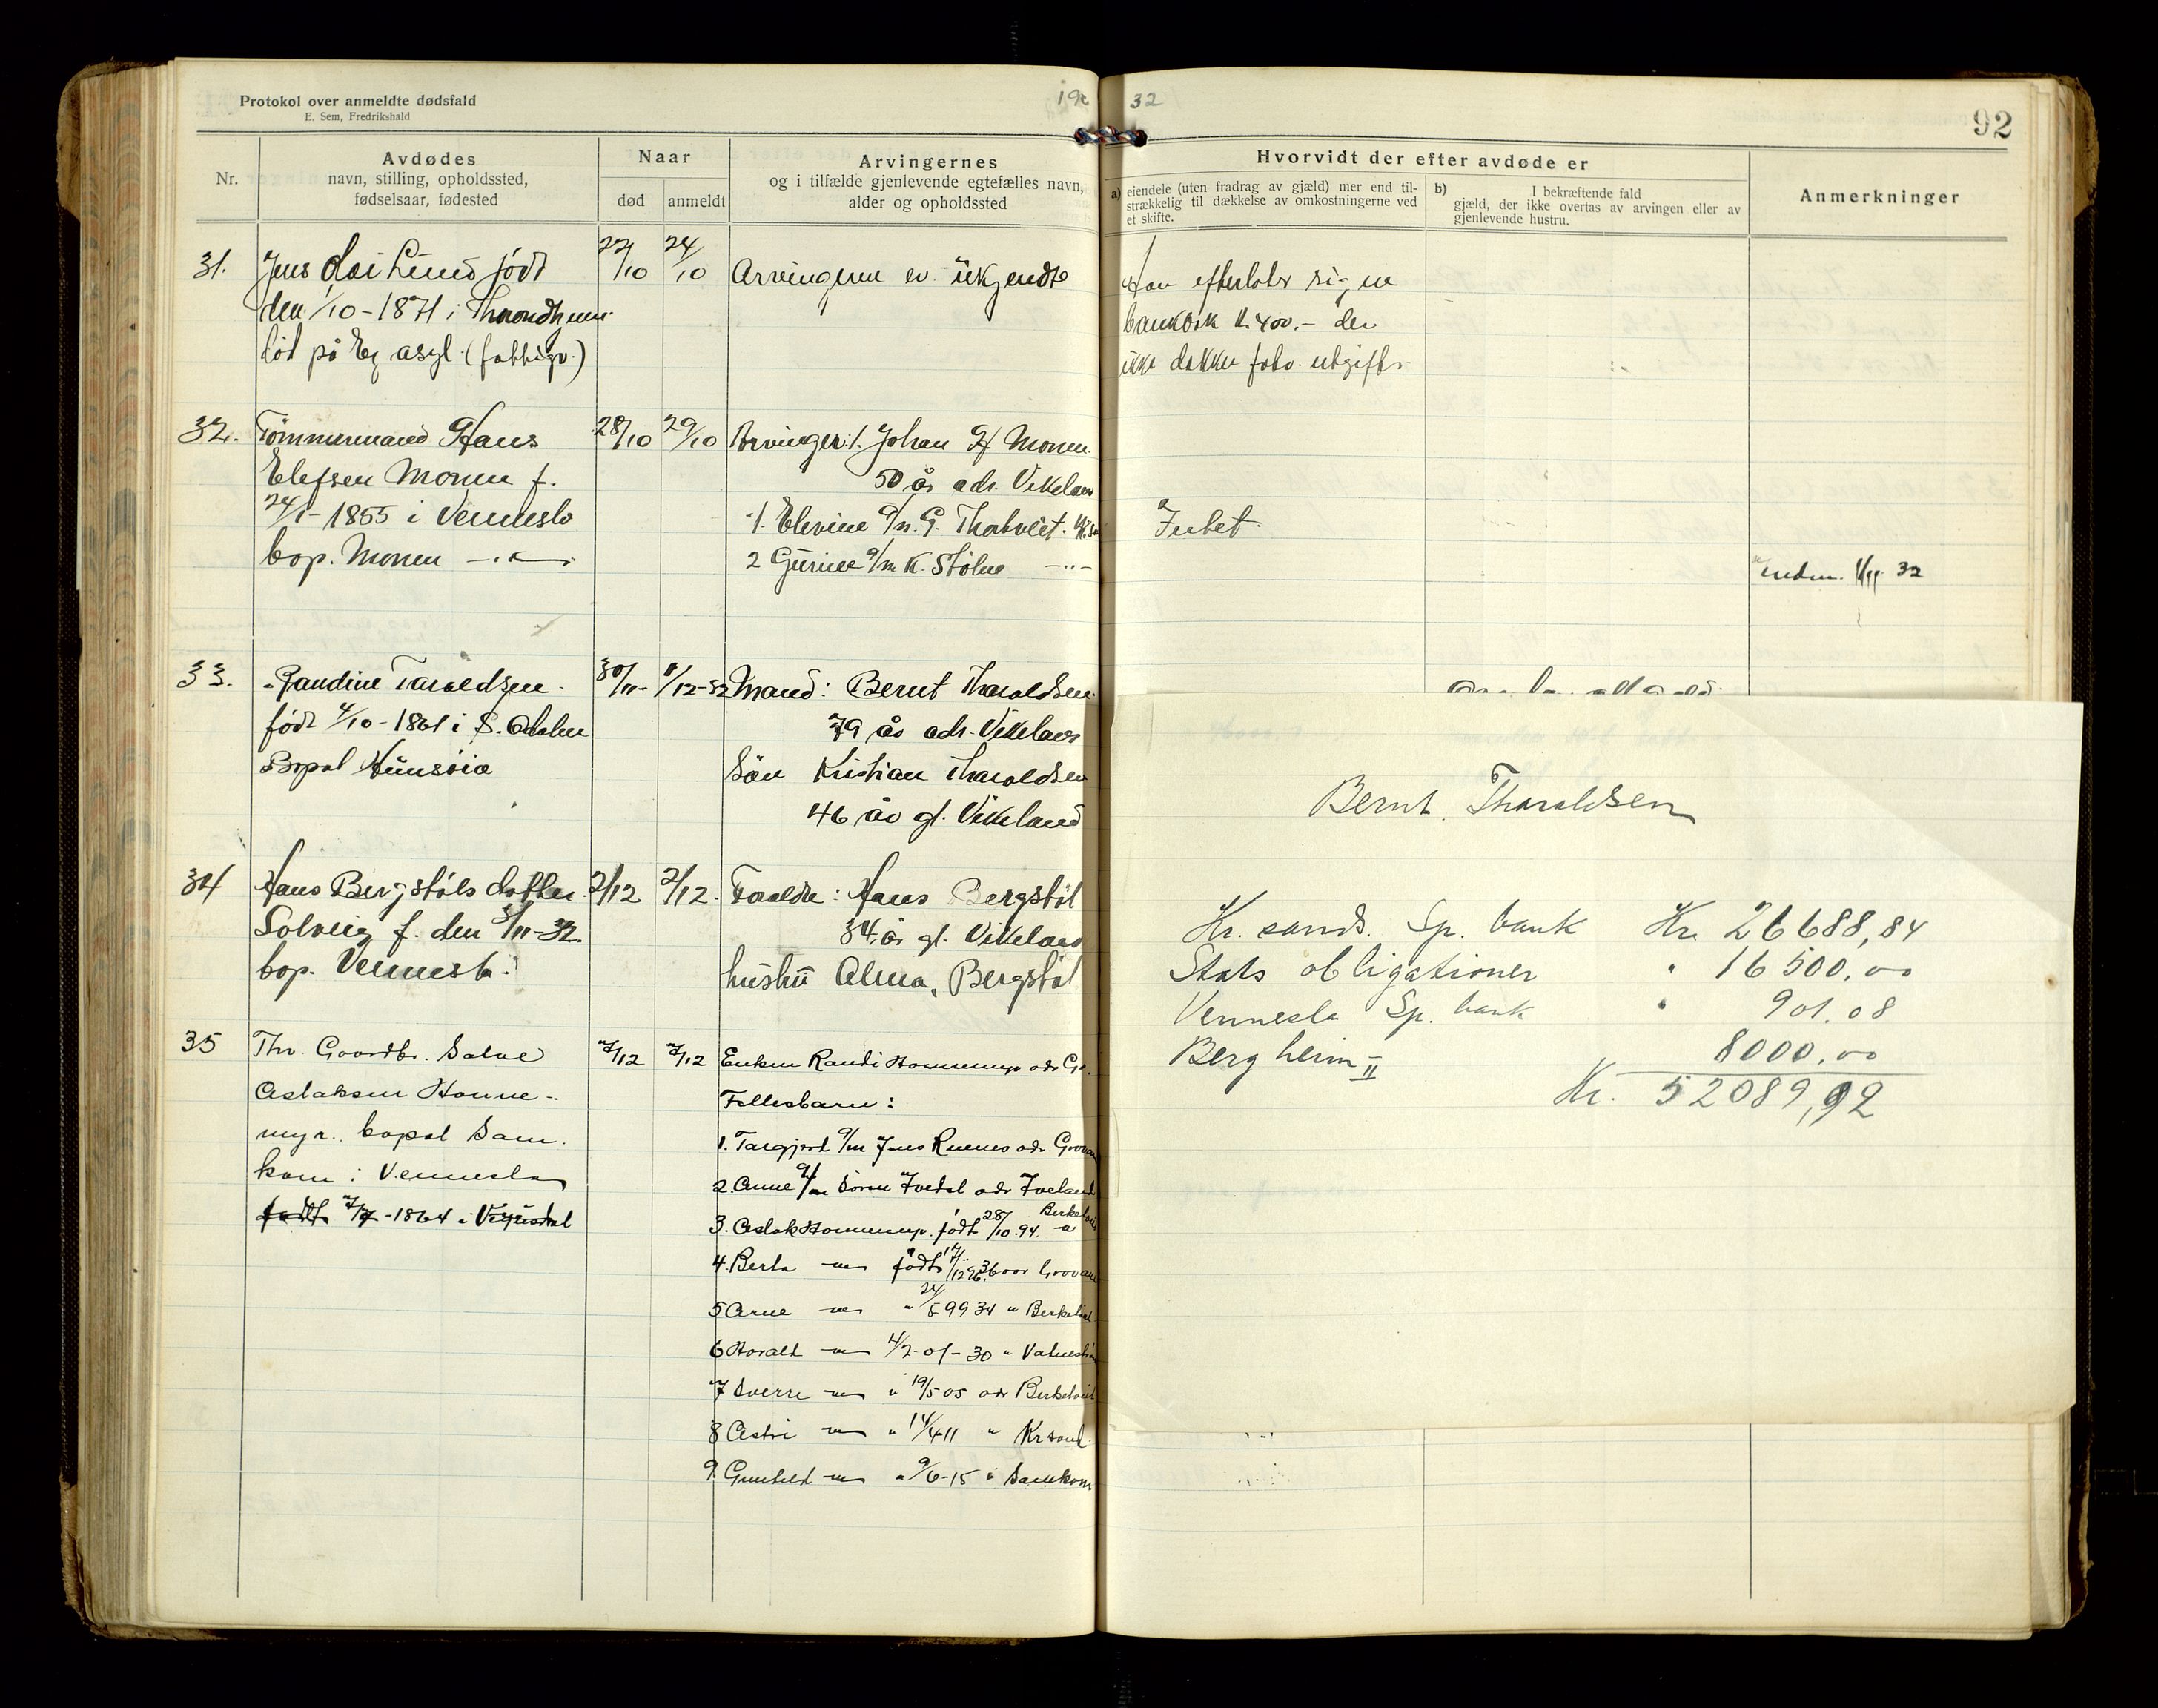 Protokol over anmeldte dødsfald
E. Sem, Fredrikshald
19
32
92
Nr.
Avdødes
navn, stilling, opholdssted,
fødselsaar, fødested
Naar
død
anmeldt
Arvingernes
og i tilfælde gjenlevende egtefælles navn,
alder og opholdssted
Hvorvidt der efter avdøde er
a) eiendele (uten fradrag av gjæld) mer end til-
strækkelig til dækkelse av omkostningerne ved
et skifte.
b) I bekræftende fald
gjæld, der ikke overtas av arvingen eller av
gjenlevende hustru.
Anmerkninger
31. Jens Lund født 22/10 24/10 Arvingerne er ukjendte
den 1/10-1871 i Throndhjem
død på Eg asyl (fattigv.)
Han efterlater sig en
bankbok k. 400.- der
ikke dekker forv. utgifter
32. Tømmermand Hans 28/10 29/10 Arvinger: 1. Johan H Monen
Elefsen Monen f. 50 år adr. Vikeland
24/1-1855 i Vennesla 1. Elevine g/m G.
bop. Monen -"- 2 Gurine g/m K. Stølen -"-
Intet.
1/11 32
33. Randine Taraldsen 30/11- 1/12-32 Mand: Bernt Tharaldsen
født 4/10-1861 i 79 år adr. Vikeland
Bopel Hunsøia Søn Kristian Tharaldsen
46 år gl. Vikeland
34 Hans Bergstøls datter 2/12 2/12. Forældre: Hans Bergstøl
Solveig f. den /11-32 34 år gl. Vikeland
bop. Vennesla. hustru Alma Bergstøl
35 Thv. Gaardbr. Salve 7/12 7/12 Enken Randi Honnemyr adr
Aslaksen Honne- Fellesbarn:
myr. bopel Sam. 1. Targjerd g/m Jens adr Grovan
kom i Vennesla 2. Anne g/m Søren Ivedal adr Iveland
født 7/7-1864 i 3. Aslak Honnemyr født 28/10.94. Birketveit
4. Berta født 17/12 96 36 år Grovane
5 Arne " 24/8 99 34 " Birketveit
6 Harald 4/2-01-30 "
7 Sverre " 19/5 05 adr Birketveit
8 Astri " 14/4-11 " Krsand.
9. Gunhild " 9/6-15 " Samkom
Bernt Tharaldsen
Kr. sands. Sp. bank Kr. 26688,84
Stats obligationer " 16500.00
Vennesla Sp. bank " 901.08
Bergheim II 8000.00
Kr. 52089,92